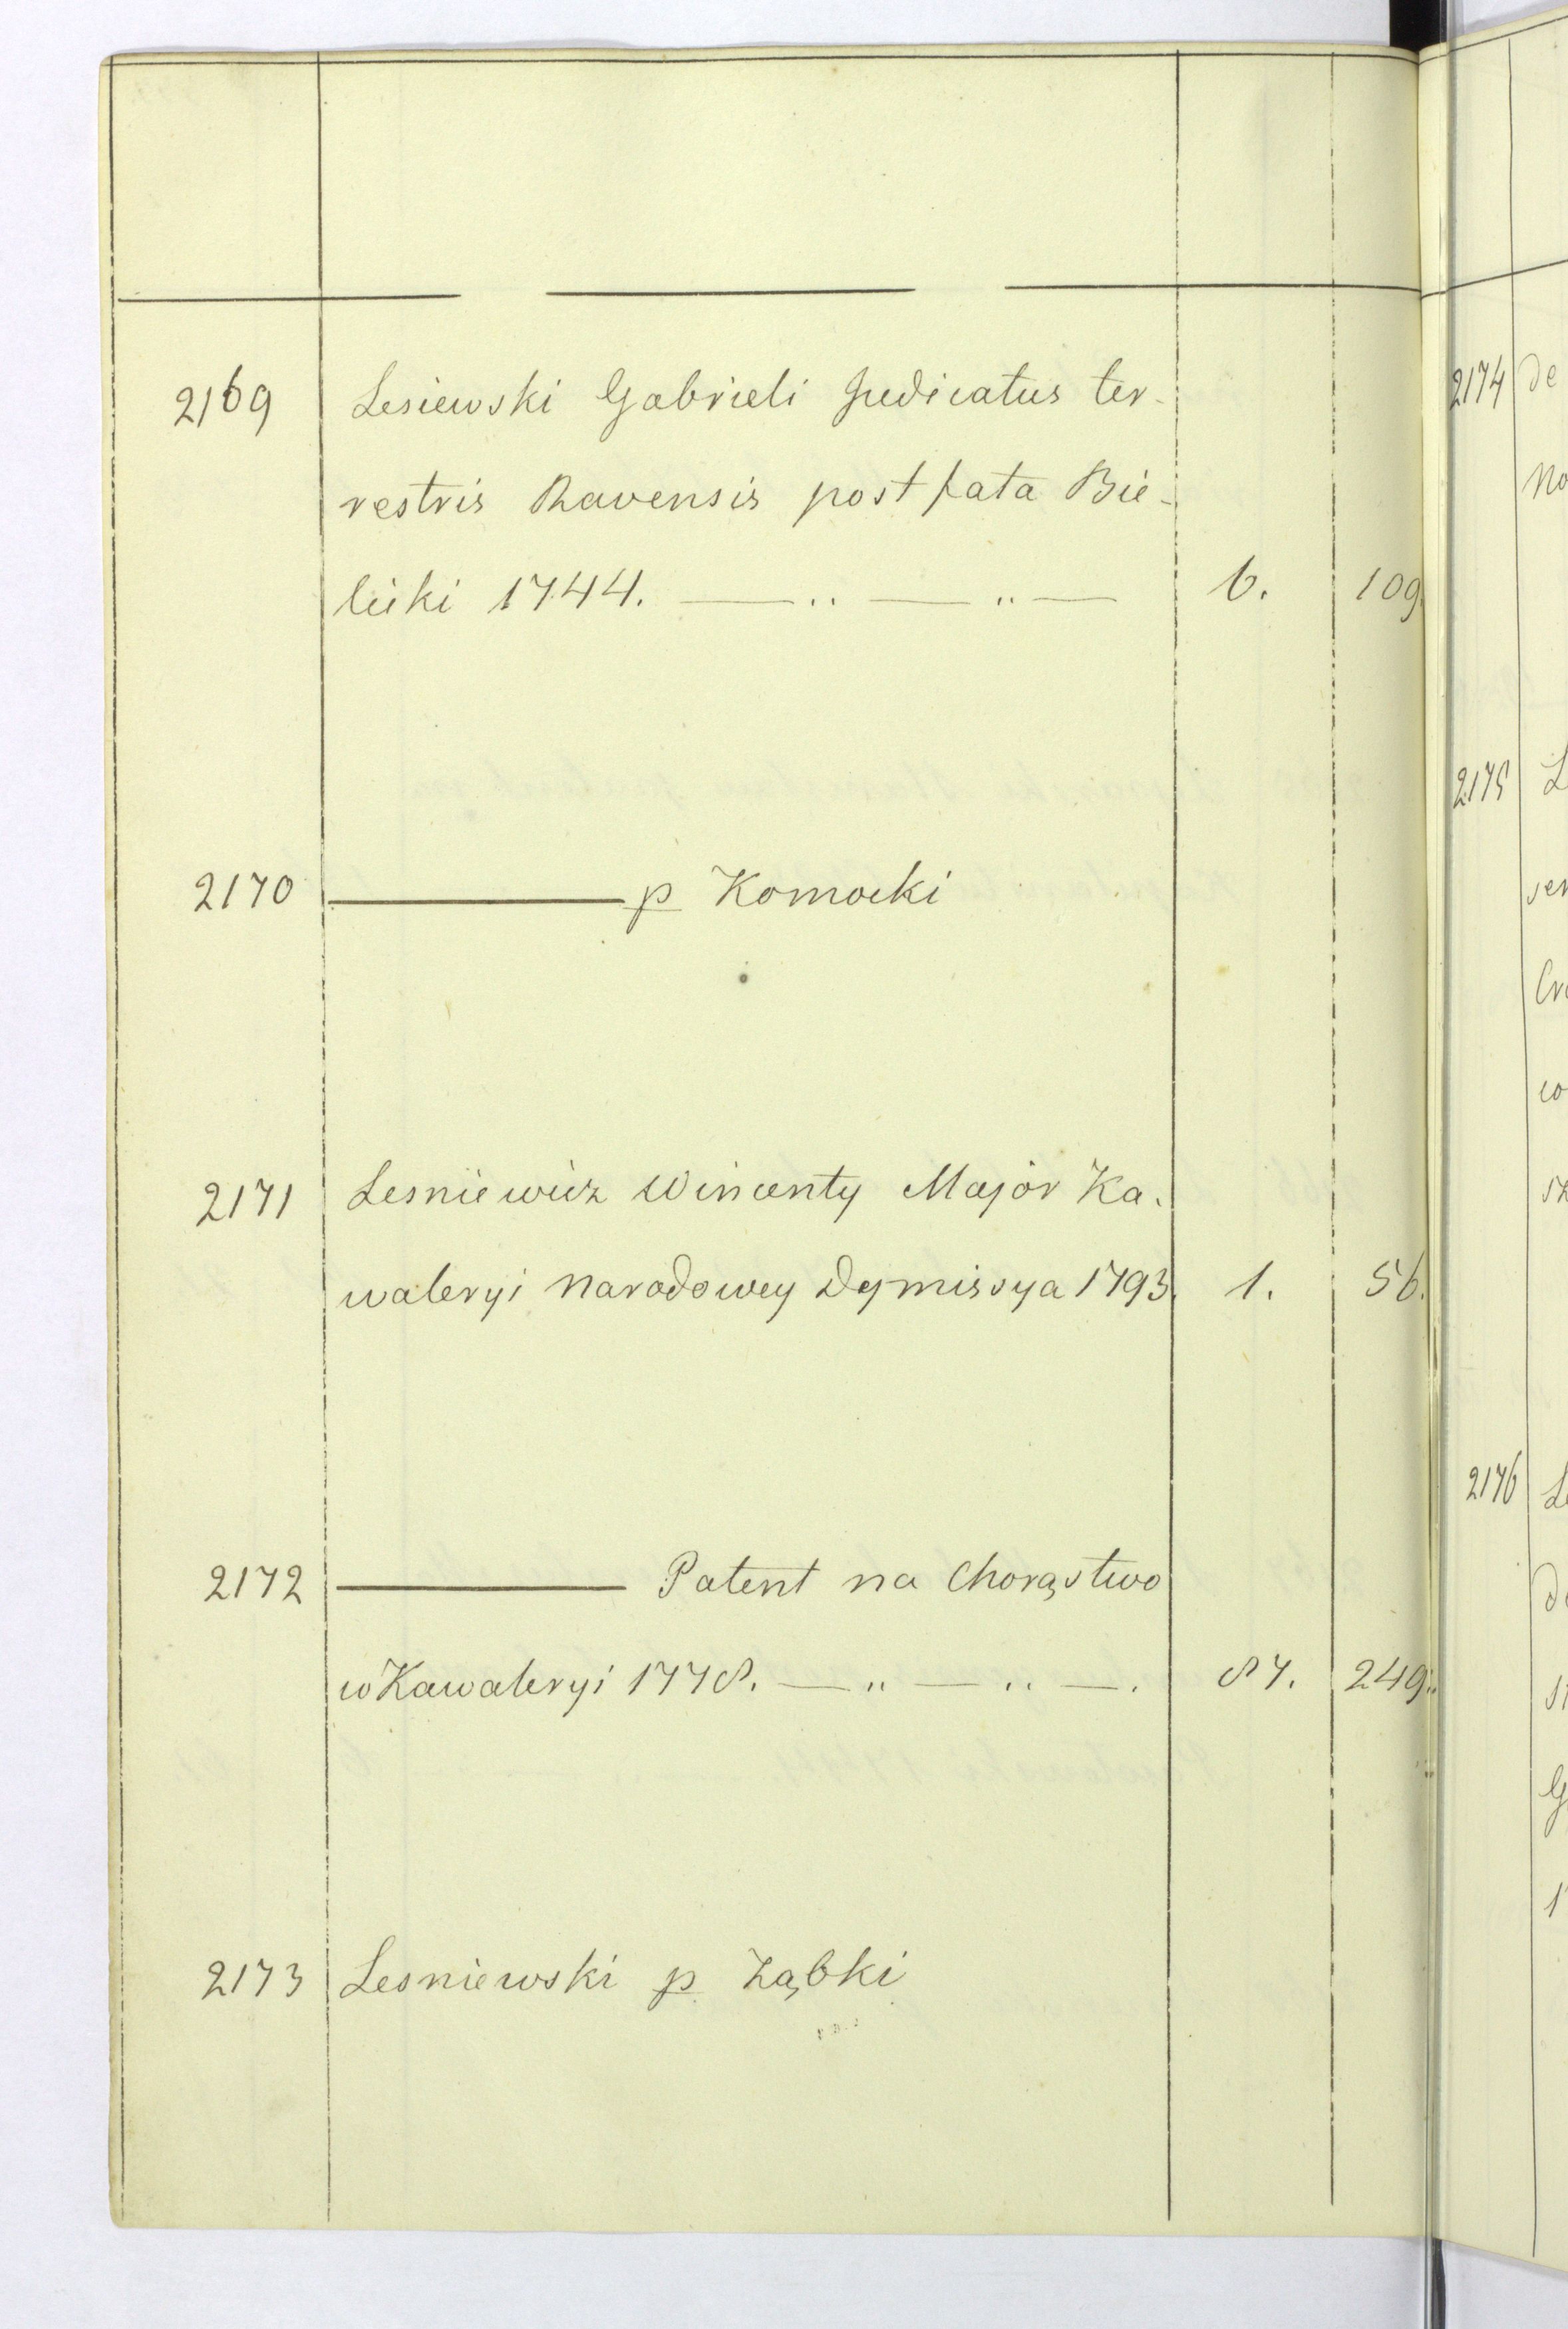 2169 Lesiewski Gabrieli Judicatus ter-
restris Ravensis post fata Bie-
licki 1744. — „ — „ — 6. 109.
2170 ——— p Komocki
2171 Lesniewicz Wincenty Major Ka-
waleryi Narodowey Dymissya 1793. 1. 56.
2172 ——— Patent na Chorąstwo
w Kawaleryi 1778. — „ — „ —. 87. 249.
2173 Lesniewski p Ząbki
2174 de
No
2175 L
ser
Cra
co
sk
2176 Le
de
st
G
1